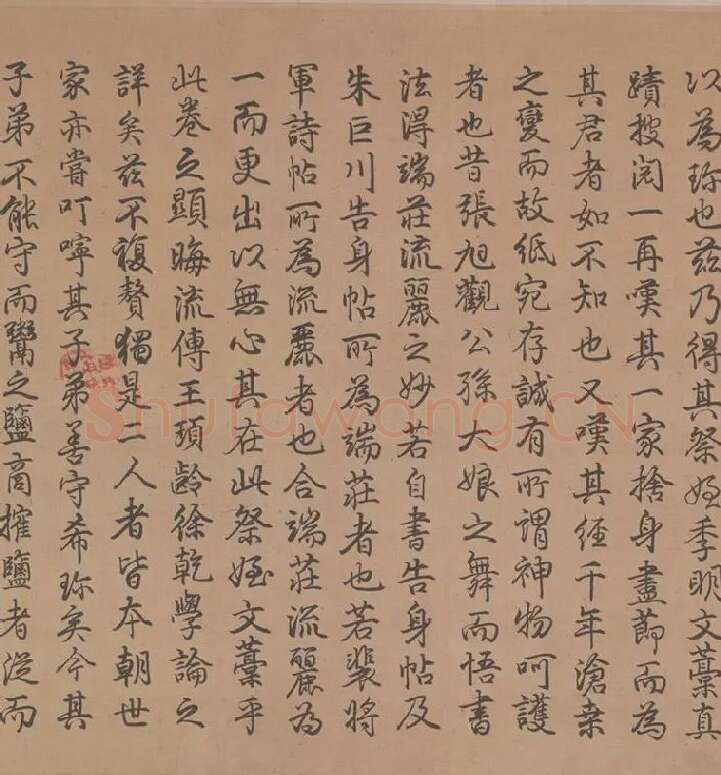 以為珎也茲乃得其祭姪季明文藁真
蹟披閱一再嘆其一家捨身盡節而為
其君者如不知也又嘆其經千年滄桒
之變而故紙宛存誠有所謂神物呵護
者也昔張旭觀公孫大娘之舞而悟書
法得端莊流麗之妙若自書告身帖及
朱巨川告身帖所為端莊者也若裴將
軍詩帖所為流麗者也合端莊流麗為
一而更出以無心其在此祭姪文藁乎
此卷之顯晦流傳王頊齡徐乾學論之
詳矣茲不複贅獨是二人者皆本朝世
家亦嘗叮嚀其子弟善守希珎矣今其
子弟不能守而鬻之鹽商搉鹽者從而
Shufawang.CN